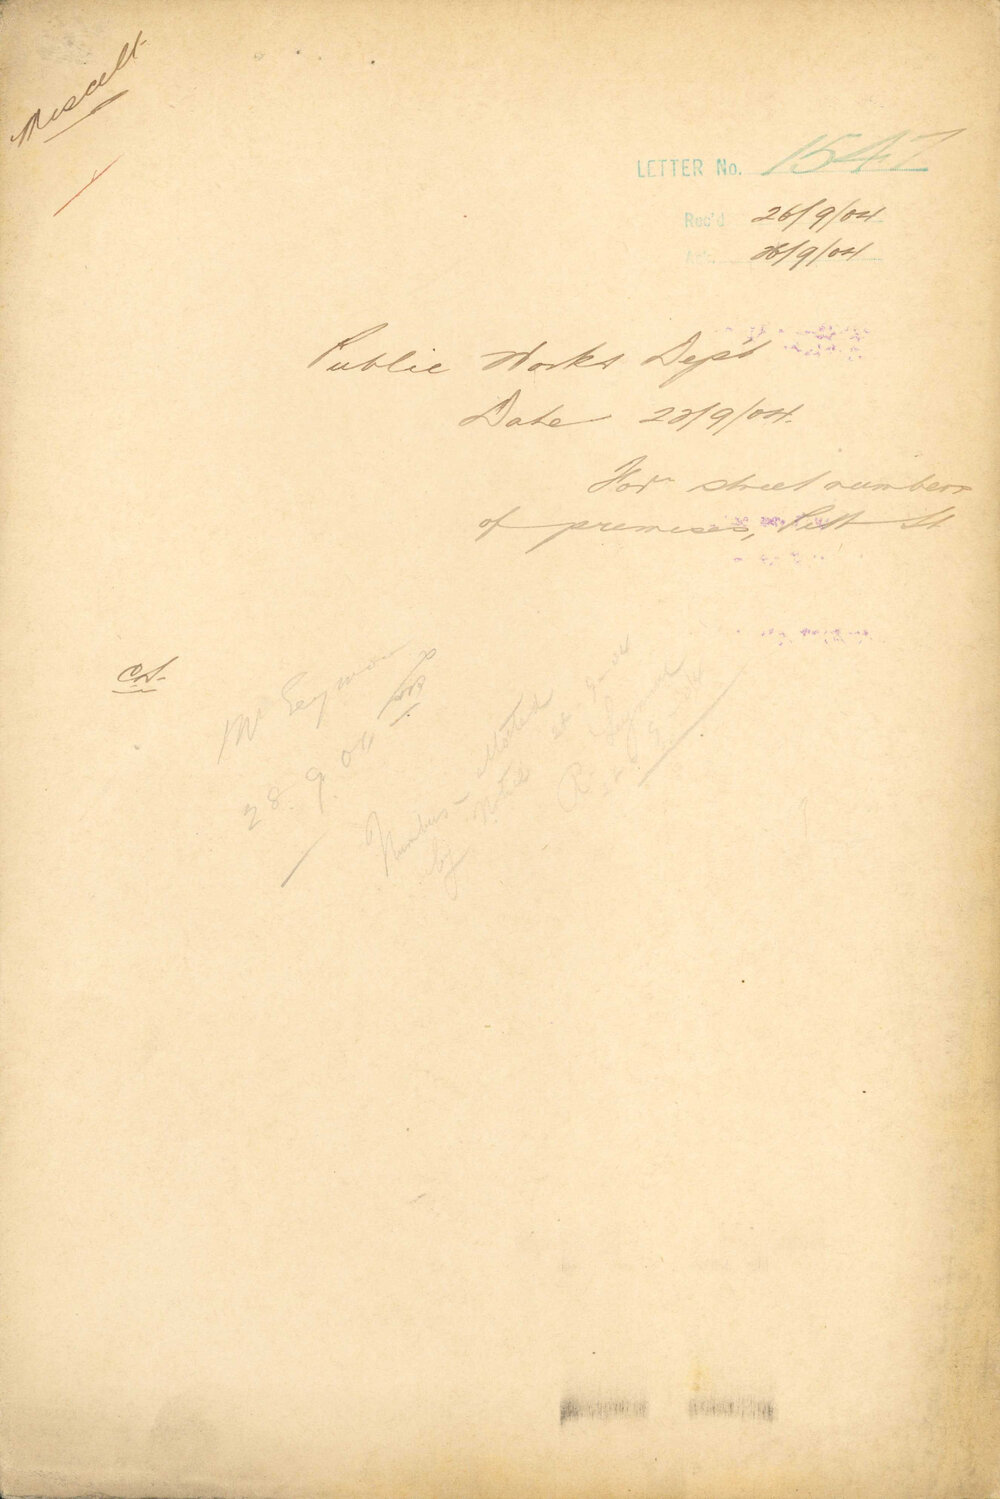 Miscell
LETTER No. 1547
Rec'd 26/9/04
Ans. 28/9/04
Public Works Dept
Date 22/9/04.
For street numbers
of premises, Pitt St
Mr Seymour
28.9.04
Numbers allotted
by
R Seymour